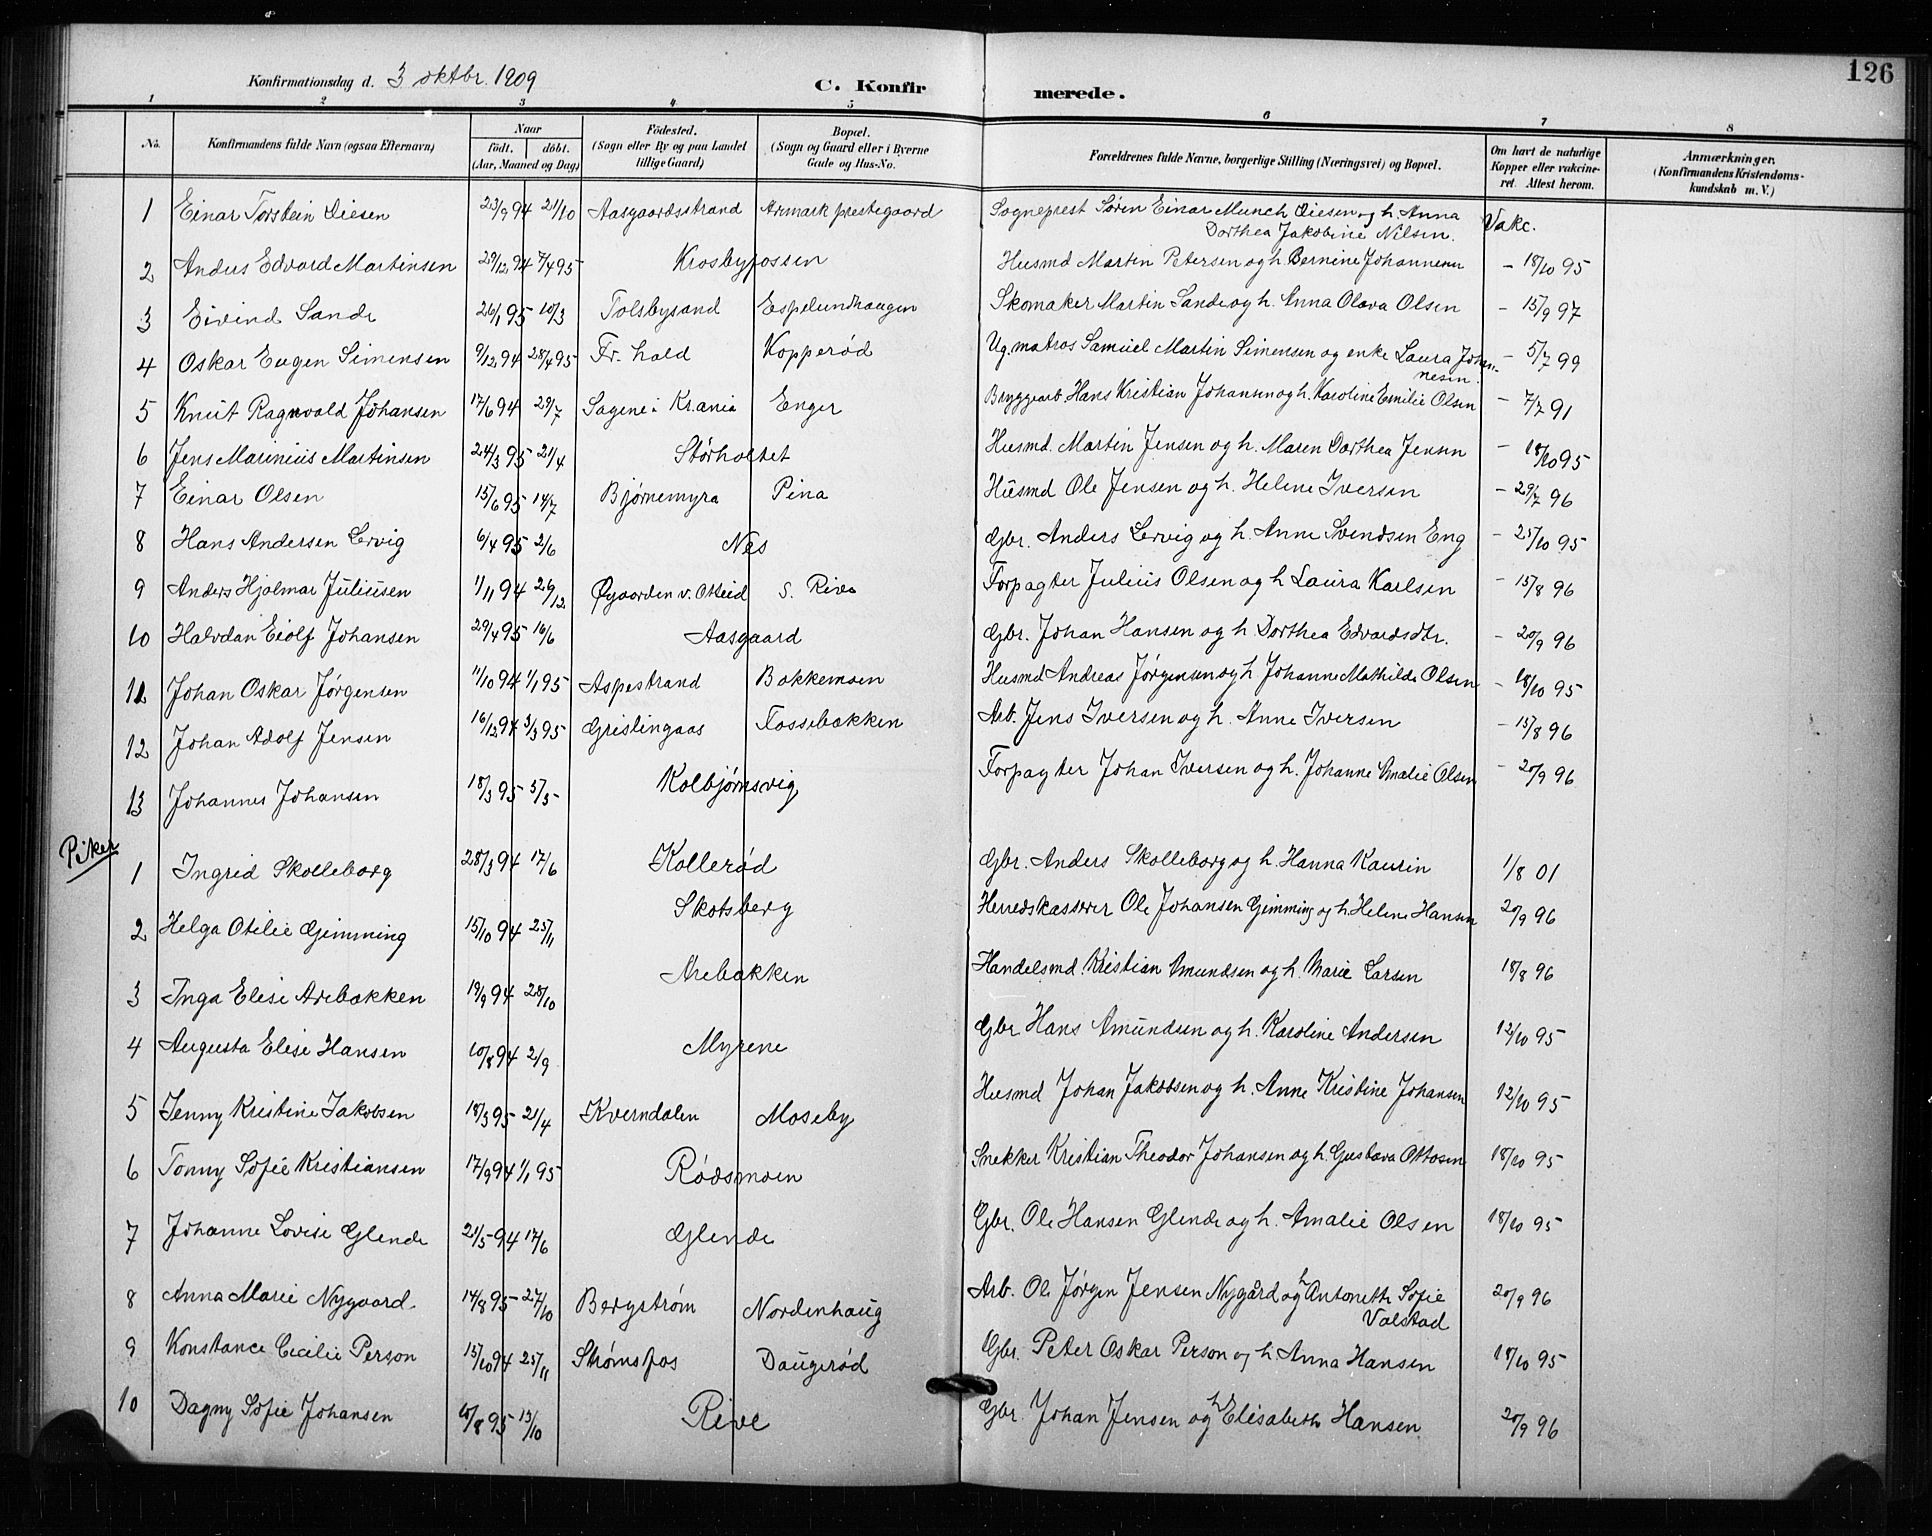 126
Konfirmationsdag d. 3 oktbr. 1909
C. Konfirmerede.
1 2 3 4 5 6 7 8
No. Konfirmandens fulde Navn (ogsaa Efternavn) Naar født. døbt. (Aar, Maaned og Dag) Fødested. (Sogn eller By og paa Landet tillige Gaard) Bopæl. (Sogn og Gaard eller i Byerne Gade og Hus-No. Forældrenes fulde Navne, borgerlige Stilling (Næringsvei) og Bopæl. Om havt de naturlige Kopper eller vakcineret. Attest herom. Anmærkninger. (Konfirmandens Kristendomskundskab m. V.)
1 Einar Torstein Diesen 23/9 94 21/10 Aasgaardsstrand Aremark prestegaard Sogneprest Søren Einar Munch Diesen og h. Anna Vakc.
Dorthea Jakobine Nilsen.
2 Anders Edvard Martinsen 29/12 94 7/4 95 Krosbyfossen Husmd Martin Petersen og h Bernine Johannesen - 18/10 95
3 Eivind Sande 26/1 95 10/3 Tolsbysand Espelundhaugen Skomaker Martin Sande og h. Anna Olava Olsen - 15/9 97
4 Oskar Eugen Simensen 9/12 94 28/4 95 Fr. hald Kopperød Ug. matros Samuel Martin Simensen og enke Laura Johan- - 5/7 99
nesen.
5 Knut Ragnvald Johansen 17/6 94 29/7 Sagene i Kr.ania Enger Bryggearb Hans Kristian Johansen og h. Karoline Emilie Olsen - 7/7 91
6 Jens Marinius Martinsen 24/3 95 21/4 Størholtet Husmd. Martin Jensen og h. Maren Dorthea Jensen - 18/10 95
7 Einar Olsen 15/6 95 14/7 Bjørnemyra Pina Husmd Ole Jensen og h. Helene Iversen - 29/7 96
8 Hans Andersen Lervig 6/4 95 2/6 Nes Gbr. Anders Lervig og h. Anne Svendsen Eng - 25/10 95
9 Anders Hjalmar Juliusen 1/11 94 26/12 Øygaarden v. Otteid S. Rive Forpagter Julius Olsen og h Laura Karlsen - 15/8 96
10 Halvdan Eiolf Johansen 29/4 95 16/6 Aasgaard Gbr. Johan Hansen og h. Dorthea Edvardsdtr. - 20/9 96
11 Johan Oskar Jørgensen 11/10 94 1/1 95 Aspestrand Bakkemoen Husmd Andreas Jørgensen og h Johanne Mathilde Olsen - 18/10 95
12 Johan Adolf Jensen 16/12 94 3/3 95 Gristingaas Fossebakken Arb. Jens Iversen og h. Anne Iversen - 15/8 96
13 Johannes Johansen 18/3 95 5/5 Kolbjørnsvig Forpagter Johan Iversen og h. Johanne Amalie Olsen - 20/9 96
Piker
1 Ingrid Skolleborg 28/3 94 17/6 Kollerød Gbr. Anders Skolleborg og h. Hanna Kaurin 1/8 01
2 Helga Otilie Gimming 15/10 94 25/11 Skotsberg Herredskasserer Ole Johansen Gimming og h. Helene Hansen 20/9 96
3 Inga Elise Arebakken 19/9 94 28/10 Arebakken Handelsmd. Kristian Amundsen og h. Marie Larsen 18/8 96
4 Augusta Elise Hansen 10/8 94 2/9 Myrene Gbr Hans Amundsen og h. Karoline Andersen 12/10 95
5 Jenny Kristine Jakobsen 18/3 95 21/4 Kverndalen Moseby Husmd Johan Jakobsen og h. Anne Kristine Johansen 12/10 95
6 Tonny Sofie Kristiansen 17/9 94 1/1 95 Rødsmoen Snekker Kristian Theodor Johansen og h. Gustava Ottosen 18/10 95
7 Johanne Lovise Glende 21/5 94 17/6 Glende Gbr. Ole Hansen Glende og h. Amalie Olsen 18/10 95
8 Anna Marie Nygaard 14/8 95 27/10 Bergstrøm Nordenhaug Arb. Ole Jørgen Jensen Nygård og h Antonette Sofie 20/9 96
Valstad
9 Konstance Cecilie Person 15/10 94 25/11 Strømsfos Daugerød Gbr. Peter Oskar Person og h Anna Hansen 18/10 95
10 Dagny Sofie Johansen 10/8 95 13/10 Rive Gbr. Johan Jensen og h Elisabeth Hansen 20/9 96